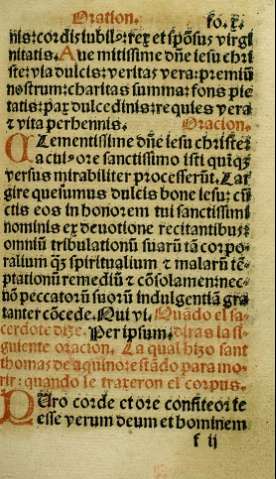 Oration. fo. x.
nis: cordis iubilo: rex et spõsus virgi
nitatis. Aue mitissime dñe iesu chri
ste: via dulcis: veritas vera: premiũ
nostrum: charitas summa: fons pie
tatis: pax dulcedinis: requies vera
⁊ vita perhennis. Oracion.
Clementissime dñe iesu christe:
a cuiꝰ ore sanctissimo isti quiqȝ
versus mirabiliter processerũt. Lar
gire quesumus dulcis bone iesu: cũ
ctis eos in honorem tui sanctissimi
nominis ex deuotione recitantibus:
omniũ tribulationũ suarũ tã corpo
ralium qȝ spiritualium ⁊ malarũ tẽ
ptationũ remediũ ⁊ cõsolamen: nec
nõ peccatorũ suorũ indulgentiã gra
tanter cõcede. Qui vi. Quãdo el sa
cerdote dize. Per ipsum. diras la si
guiente oracion. La qual hizo sant
thomas de aquino: estãdo para mo
rir: quando le traxeron el corpus.
Puro corde et ore confiteor te
esse verum deum et hominem
f ij